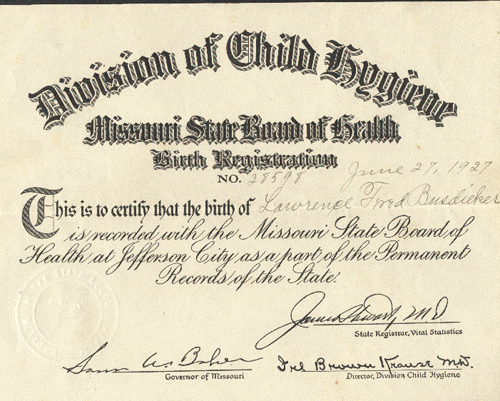 Division of Child Hygiene
Missouri State Board of Health
Birth Registration
NO. 28598 June 27, 1927
This is to certify that the birth of Lawrence Fred Busdieker
is recorded with the Missouri State Board of
Health at Jefferson City as a part of the Permanent
Records of the State.
James Stewart, MD
State Registrar, Vital Statistics
Sam A. Baker Irl Brown Krause MD.
Governor of Missouri Director, Division Child Hygiene